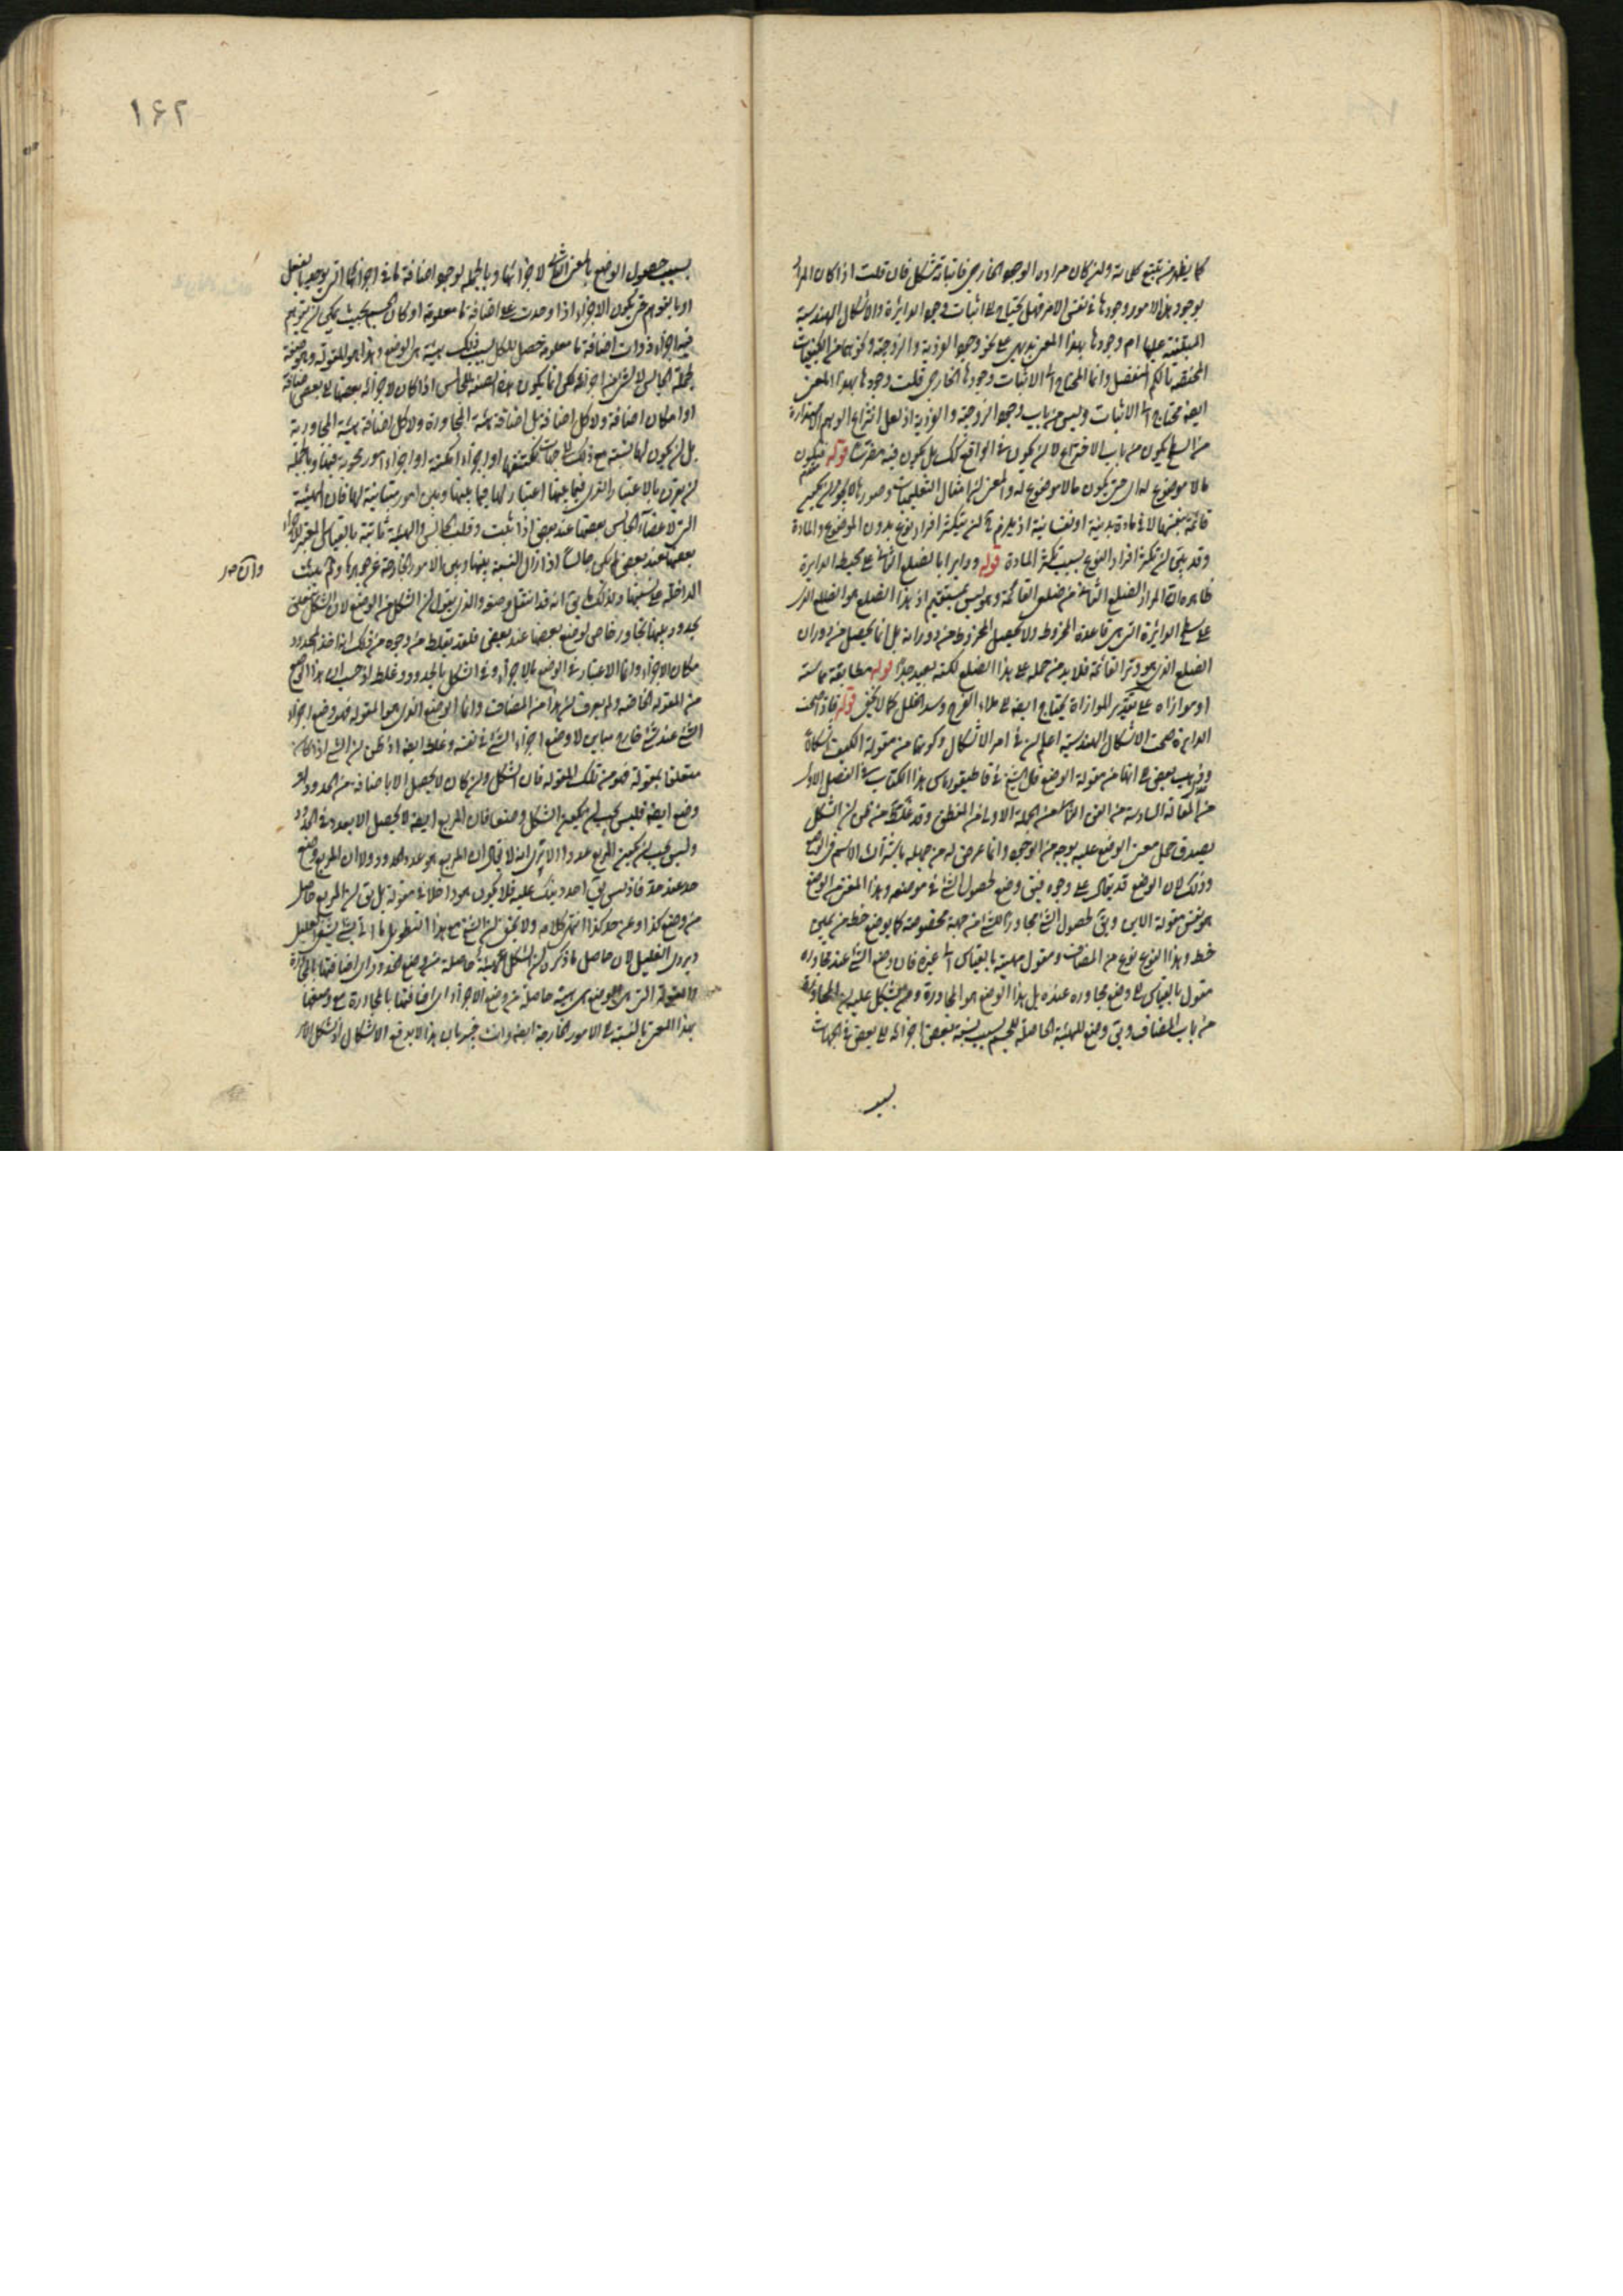 كما يظهر من تتبع كلماته وان كان مراده الوجود الخارجي فاثباته مشكل فان قلت اذا كان المراد
بوجود هذه الامور وجودها في نفس الامر فهل يحتاج الى اثبات وجود الدايرة والاشكال الهندسية
المبتنية عليها ام وجودها بهذا المعنى بديهي على نحو وجود الفردية والزوجية وغيرهما من الكيفيات
المختصة بالكم المنفصل وانما المحتاج الى الاثبات وجودها الخارجي قلت وجودها بهذا المعنى
ايضا محتاج الى الاثبات وليس من باب وجود الزوجية والفردية اذ لعل انتزاع الوهم الاستدارة
من السطح يكون من باب الاختراع لا ان يكون في الواقع كذلك بل يكون فيه قوله فيكون
ما لا موضوع له اي حتى يكون ما لا موضوع له والمعنى ان امثال التعليميات وصورها لا يجوز ان يكون
قائمة بنفسها لا في مادة بدنية او نفسانية اذ يلزم ان يتكثر افراد نوع بدون الموضوع والمادة
وقد بين ان تكثر افراد النوع بسبب تكثر المادة قوله ودايرا بالضلع الثاني على محيط الدايرة
ظاهره ان المراد الضلع الثاني من ضلعي القائمة وهو ليس بمستقيم اذ هذا الضلع هو الضلع الذي
على سطح الدايرة التي هي قاعدة المخروط ولا يحصل المخروط من دورانه بل انما يحصل من دوران
الضلع الذي هو وتر القائمة فلا بد من حمله على هذا الضلع لكنه بعيد جدا قوله مطابقة مماسته
او موازاه على تقدير الموازاة يحتاج ايضا الى ملاء الفرج وسد الخلل كما لا يخفى قوله فاذا صحت
الدايرة صحت الاشكال الهندسية اعلم ان في امر الاشكال وكونها من مقولة الكيف اشكالا
وقد ذهب بعض الى انها من مقولة الوضع قال الشيخ في قاطيغورياس هذا الكتاب في الفصل الاول
من المقالة السادسة من الفن الثاني من الجملة الاولى في المنطق وقد غلط من ظن ان الشكل
يصدق حمل معنى الوضع عليه بوجه من الوجوه وانما عرض له من جهله باشتراك الاسم في الوضع
وذلك لان الوضع قد يقال على وجوه فيق وضع لحصول الشئ في موضعه وهذا المعنى من الوضع
هو نفس مقولة الاين ويق لحصول الشئ مجاورا للشئ من جهة مخصوصة كما يوضع خط عن يمين
خط وهذا النوع نوع من المضاف ومقول مهيته بالقياس الى غيره فان وضع الشئ عند مجاوره
مقول بالقياس الى وضع مجاوره عنده بل هذا الوضع هو المجاورة ولم يشكل عليه ان المجاورة
من باب المضاف ويق وضع للهيئة الحاصلة للجسم بسبب نسبة بعض اجزائه الى بعض في الجهات
بسبب
۱۶۲
بسبب حصول الوضع بالمعنى الثاني لاجزائها وبالجملة لوجود اضافة ما في اجزائها التي توجد بالفعل
او بالتوهم حتى يكون الاجزاء اذا وجدت على اضافة ما معلومة او كان الجسم بحيث يمكن ان يتوهم
فيه اجزاء ذوات اضافة ما معلومة حصل للكل بسبب ذلك هيئة هي الوضع وهذا هو المقولة وهو صفة
لجملة الجالس لا لشئ من اجزائه لكن انما يكون هذه الصفة للجالس اذا كان لاجزائه بعضها الى بعض اضافة
او امكان اضافة ولا كل اضافة بل اضافة هيئة المجاورة ولا كل اضافة هيئة المجاورة
بل ان يكون لها نسبة مع ذلك الى جهات تكتنفها او اجزاء امكنة او اجزاء امور محوية فيها وبالجملة
ان يقرن بالاعتبار الذي فيما بينها اعتبار لها فيما بينها وبين امور متباينة لها فان الهيئة
التي لاعضاء الجالس بعضها عند بعض اذا بقيت وقلب الجالس والهيئة ثابتة بالقياس المعتبر لاجزاء
بعضها عند بعض لم يكن جالسا اذا زال النسبة بينها وبين الامور الخارجة عن جوهرها ولم يثبت
وان ص
الداخلة على نسبتها ولذلك ما يق انه قد انتقل وضعه والذي يقول ان الشكل من الوضع لان الشكل يتعلق
بحدود بينها تجاور خاص لوضع بعضها عند بعض فلقد يغلط من وجوه من ذلك اخذ الحدود
مكان الاجزاء وانما الاعتبار في الوضع بالاجزاء وفي الشكل بالحدود وغلط اذ حسب ان هذا الوضع
من المقولة الخاصة ولم يعرف ان هذا من المضاف وانما الوضع الذي هو المقولة فهو وضع اجزاء
الشئ عند شئ خارج مباين لا وضع اجزاء الشئ في نفسه وغلط ايضا اذ ظن ان الشئ اذا كان
متعلقا بمقولة فهو من تلك المقولة فان الشكل وان كان لا يحصل الا باضافة من الحدود او
وضع ايضا فليس يجب ان يكون الشكل وضعا فان المربع ايضا لا يحصل الا بعدد في الحدود
وليس يجب ان يكون المربع عددا الا ترى انه لا يقال ان المربع هو عدد الحدود ولا ان المربع وضع
حد عند حد فاذ ليس يق احد ذينك عليه فلا يكون هو داخلا في مقولة بل يق ان المربع حاصل
من وضع كذا وعن حد كذا انتهى كلامه ولا يخفى ان الشيخ مع هذا التطويل ما اتى بشئ يشفي العليل
ويروي الغليل لان حاصل ما ذكره ان الشكل هيئة حاصلة من وضع الحدود اي اضافتها بالمجاورة
والمقولة التي هي الوضع هي هيئة حاصلة من وضع الاجزاء اي اضافتها بالمجاورة مع وضعها
بهذا المعنى بالنسبة الى الامور الخارجة ايضا وانت خبير بان هذا لا يدفع الاشكال اذ الشكل الامر